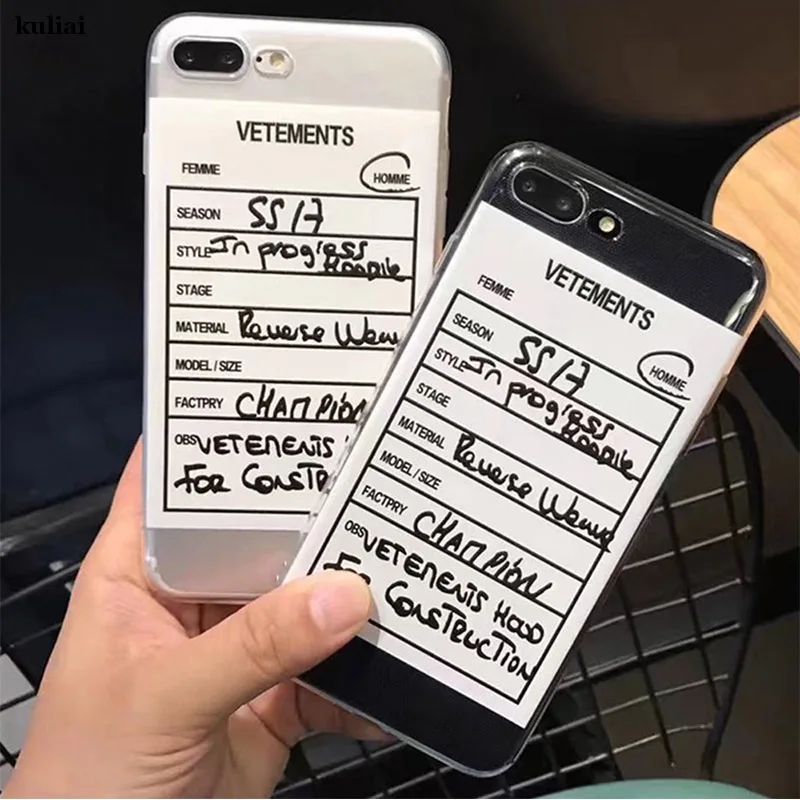 kuliai
VETEMENTS
FEMME HOMME
SEASON SS17
STYLE In progress
Hoodie
STAGE
MATERIAL Reverse Weav
MODEL / SIZE
FACTPRY CHAMPION
OBS VETEMENTS
FOR CONSTR
VETEMENTS
FEMME HOMME
SEASON SS17
STYLE In progress
Hoodie
STAGE
MATERIAL Reverse Weave
MODEL / SIZE
FACTPRY CHAMPION
OBS VETEMENTS HOOD
FOR CONSTRUCTION